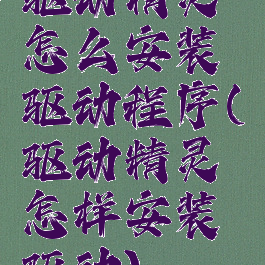 驱动精灵
怎么安装
驱动程序(
驱动精灵
怎样安装
驱动)